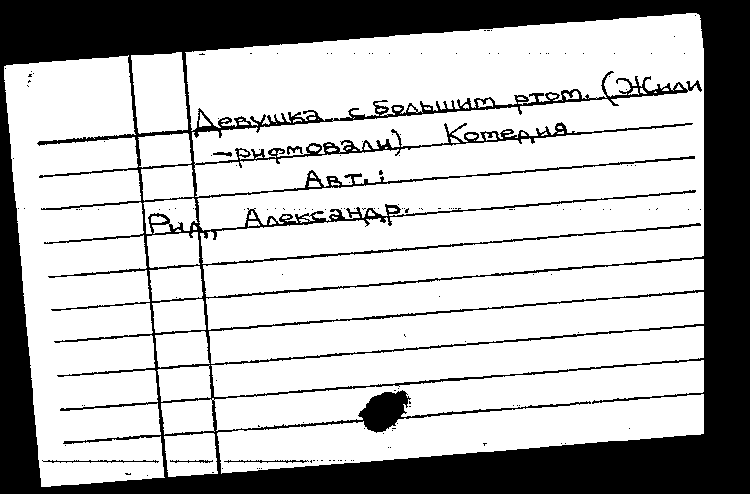 Девушка с большим ртом. (Жили
-рифмовали). Комедия.
Авт.:
Рид, Александр.